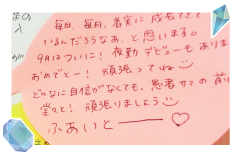 毎日、毎月、着実に成長できて
いるんだろうなあ、と思います。
9月はついに！夜勤デビューもありま
おめでとー！頑張ってね
どんなに自信がなくても、患者サマの前
堂々と！頑張りましょう
ふぁいとーーー♡